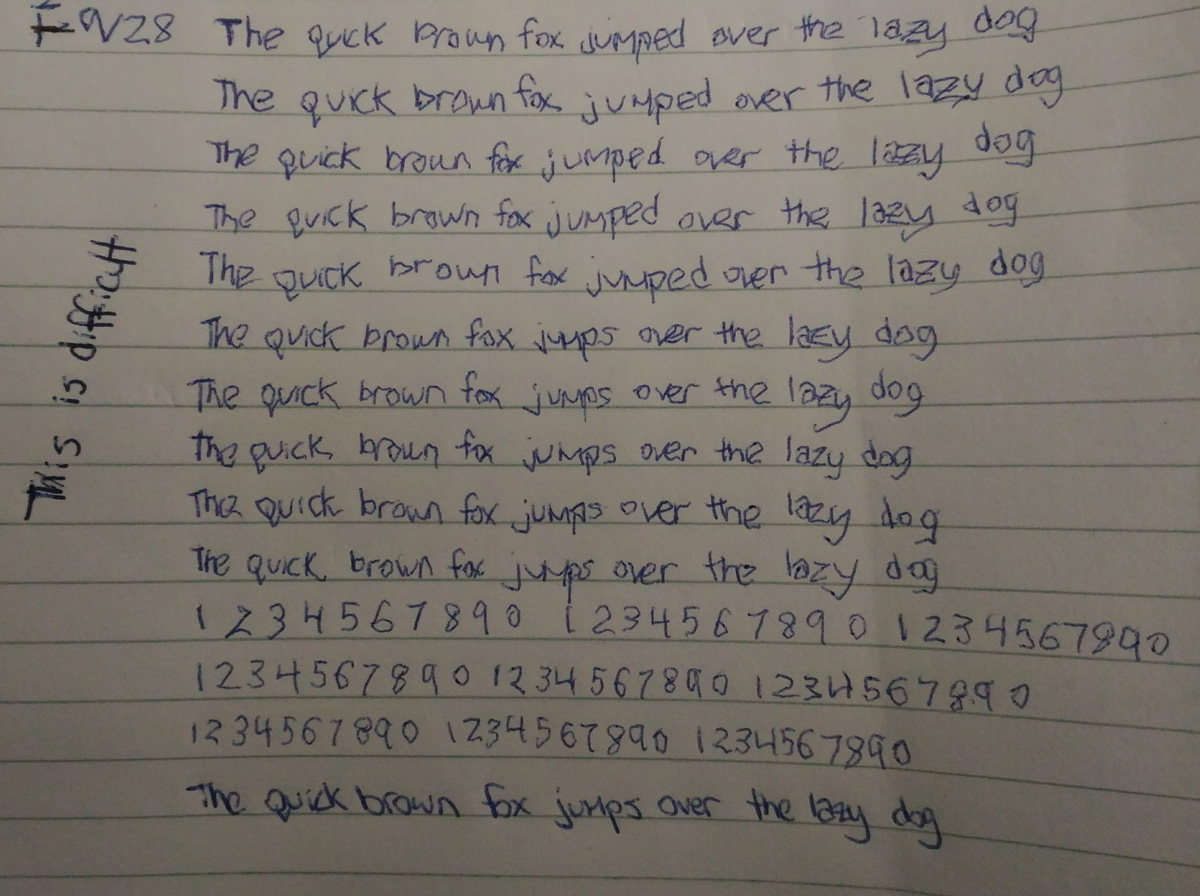 The quick brown fox jumped over the lazy dog
The quick brown fox jumped over the lazy dog
The quick brown fox jumped over the lazy dog
The quick brown fox jumped over the lazy dog
The quick brown fox jumped over the lazy dog
The quick brown fox jumps over the lazy dog
The quick brown fox jumps over the lazy dog
The quick brown fox jumps over the lazy dog
The quick brown fox jumps over the lazy dog
The quick brown fox jumps over the lazy dog
1 2 3 4 5 6 7 8 9 0 1 2 3 4 5 6 7 8 9 0 1 2 3 4 5 6 7 8 9 0
1 2 3 4 5 6 7 8 9 0 1 2 3 4 5 6 7 8 9 0 1 2 3 4 5 6 7 8 9 0
1 2 3 4 5 6 7 8 9 0 1 2 3 4 5 6 7 8 9 0 1 2 3 4 5 6 7 8 9 0
The quick brown fox jumps over the lazy dog
This is difficult